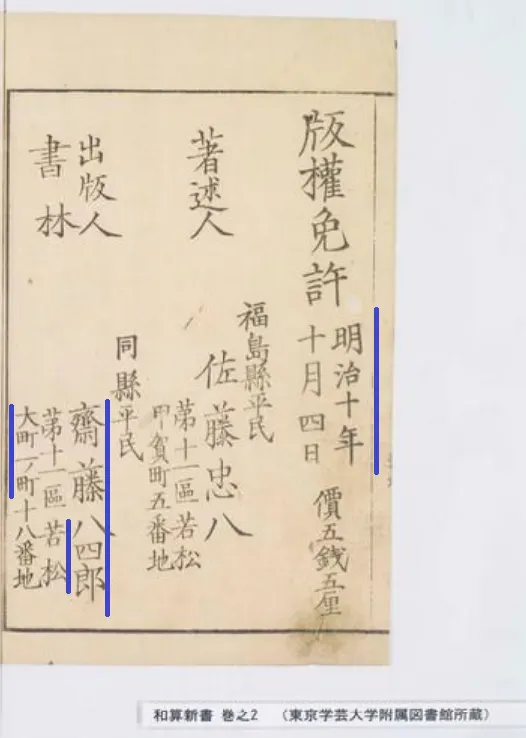 版權免許
明治十年
十月四日
價五錢五厘
著述人
福島縣平民
佐藤忠八
苐十一區若松
甲賀町五番地
出版人
書林
同縣平民
齋藤八四郎
苐十一區若松
大町一ノ町十八番地
和算新書 巻之2 （東京学芸大学附属図書館所蔵）